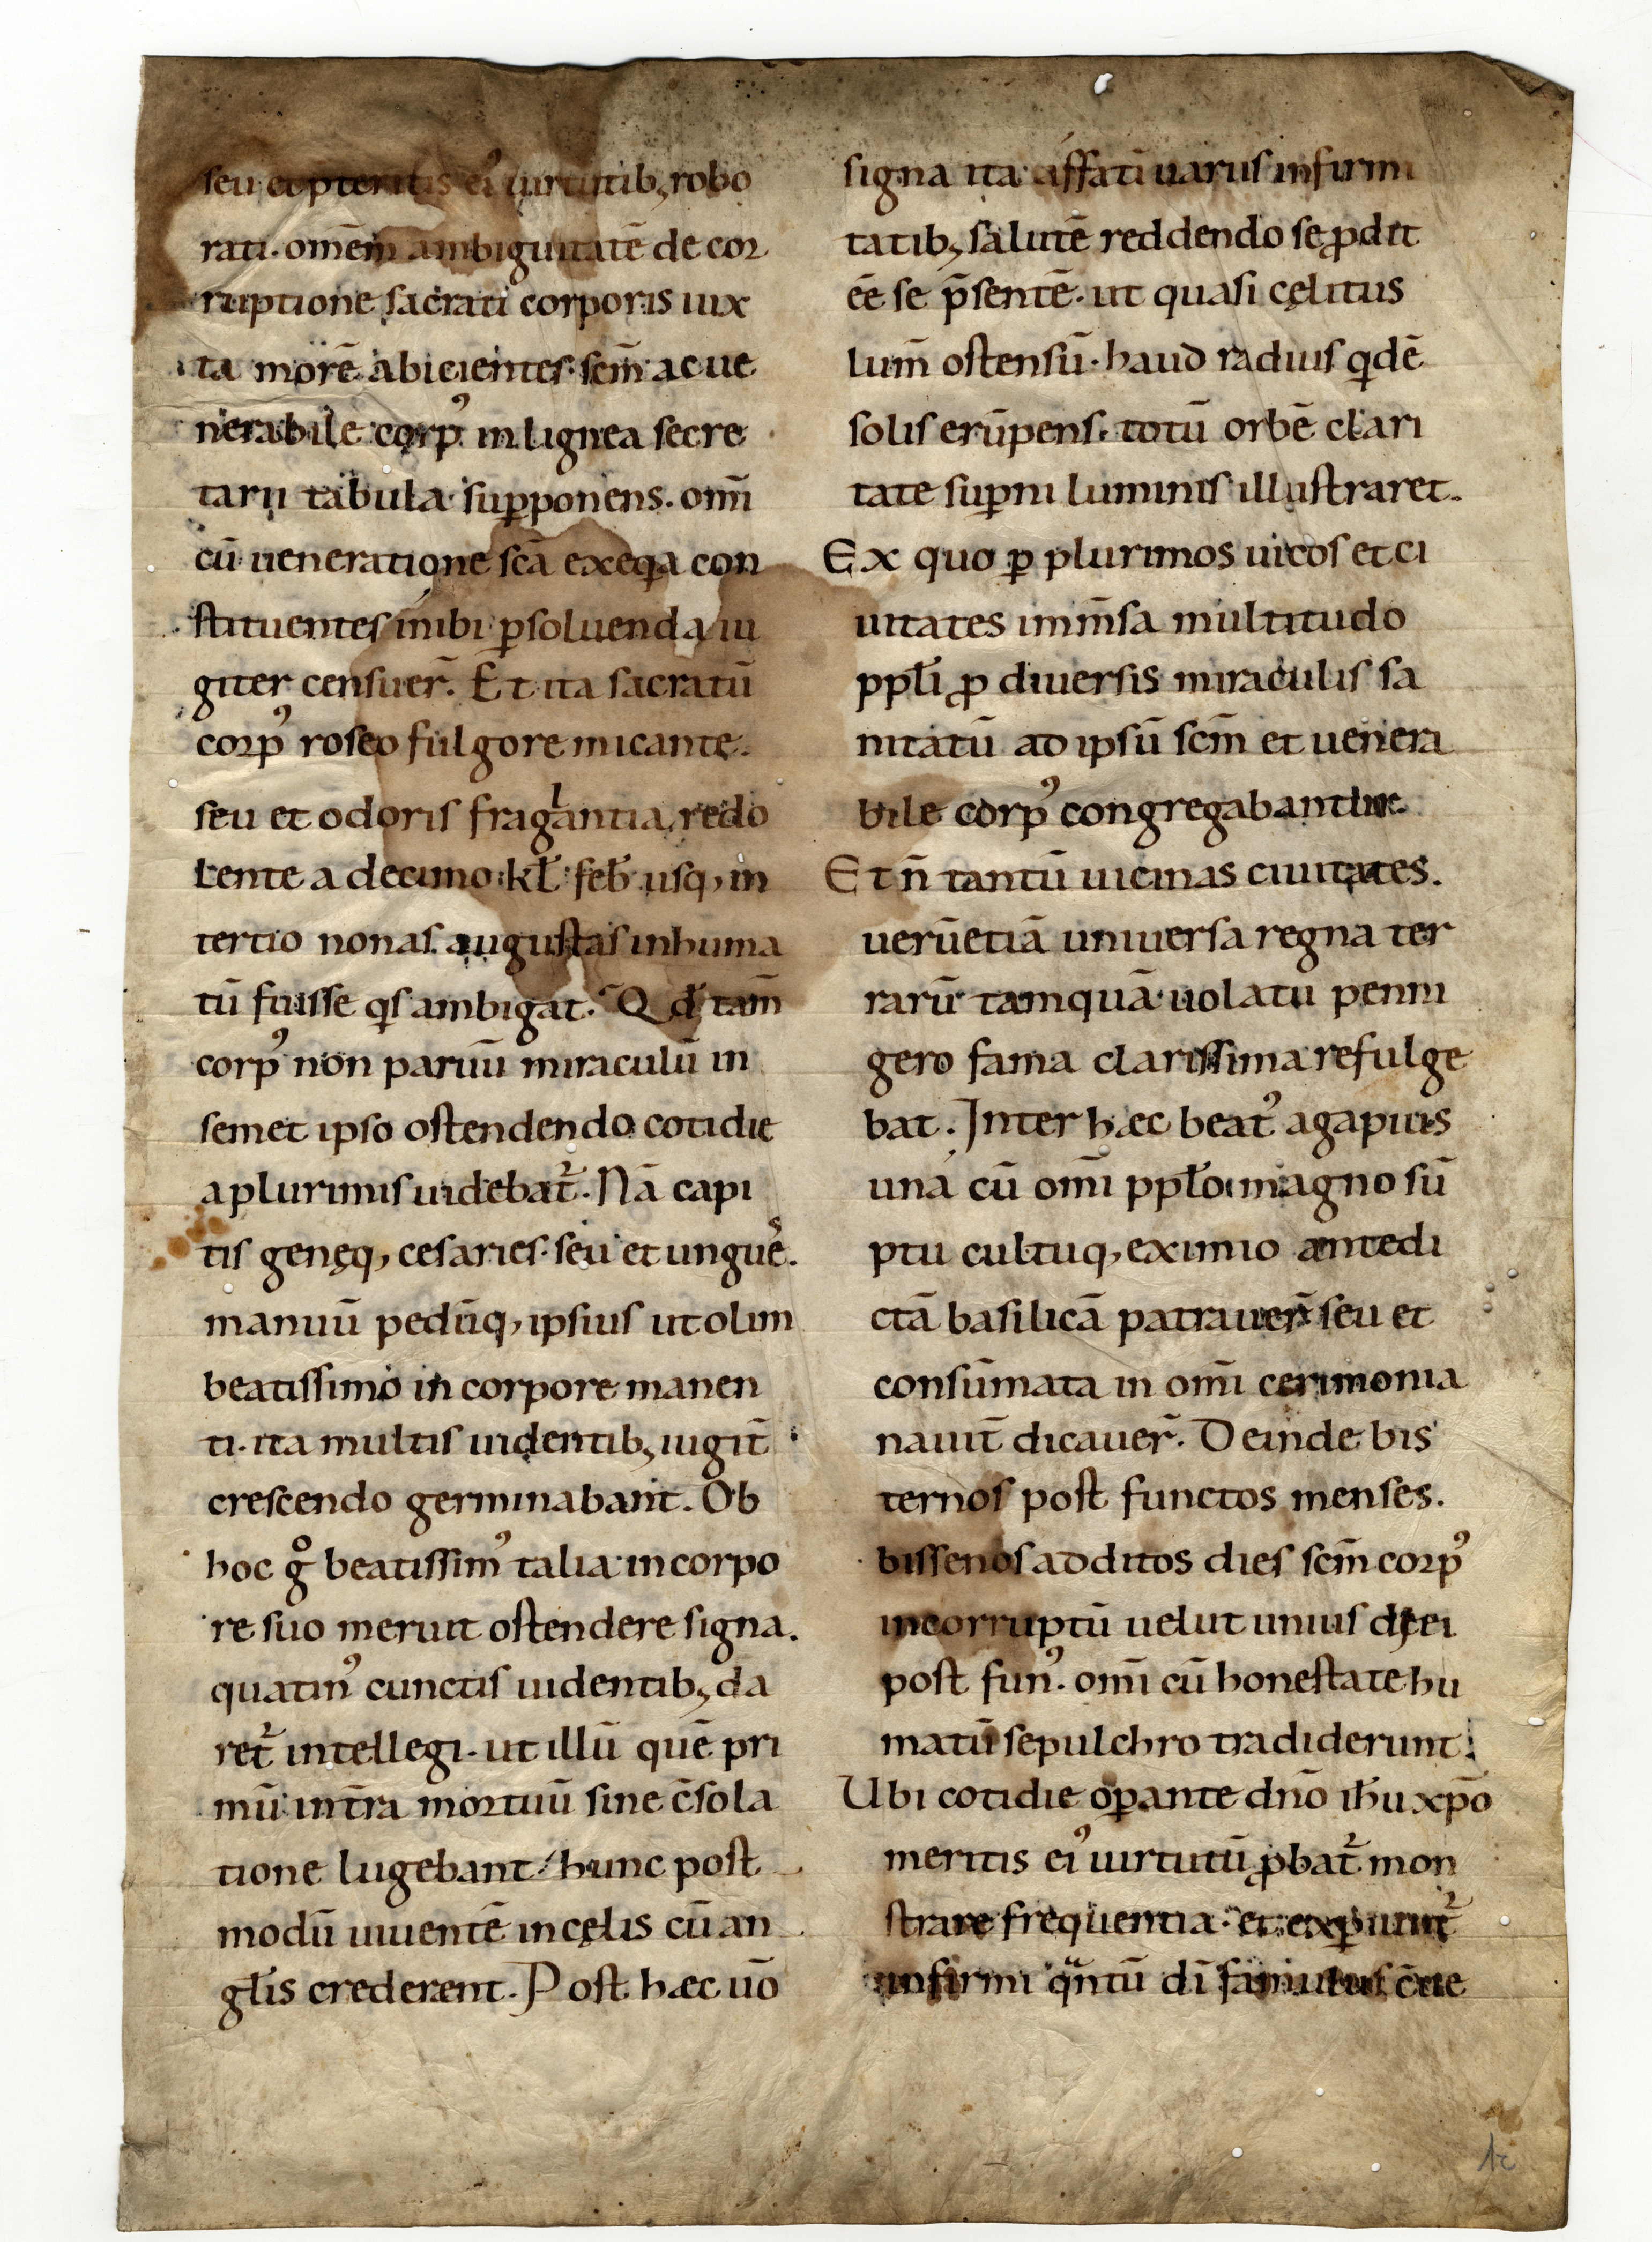 seu et pteritis ei᾽ uirtutib; robo
rati. omēm ambiguitatē de cor
ruptione sacrati corporis iux
ta morē abicientes. scm̄ ac ue
nerabile corp᾽ in lignea secre
tarii tabula supponens. om̄i
cū ueneratione scā exeqꝫa con
stituentes inibi ꝑsoluenda iu
giter censuer̄. Et ita sacratū
corp᾽ roseo fulgore micante.
seu et odoris fragantia redo
lente a decimo kł febꝉ usq; in
tertio nonas augustas inhuma
tū fuisse qs ambigat. Qđ tam̄
corp᾽ non paruū miraculū in
semet ipso ostendendo cotidie
a plurimis uidebat̃. Nā capi
tis genęq; cesaries. seu et unguēˢ.
manuū pedūq; ipsius ut olim
beatissimo in corpore manen
ti. ita multis uidentib; iugit̄
crescendo germinabant. Ob
hoc gͦ beatissim᾽ talia in corpo
re suo meruit ostendere signa.
quatin᾽ cunctis uidentib; da
ret̃ intellegi. ut illū quē pri
mū intr̄a mortuū sine c̄sola
tione lugebant. hunc post
modū uiuentē in cęlis cū an
głis crederent. Post hæc uō
signa ita affatī uariis infirmi
tatib; salutē reddendo se ꝓdit
ēē se p̄sentē. ut quasi cęlitus
lum̄ ostensū. haud radius qdē
solis erūpens. totū orbē clari
tate suꝑni luminis illustraret.
Ex quo ꝑ plurimos uicos et ci
uitates imm̄sa multitudo
ppłi ꝓ diuersis miraculis sa
nitatū ad ipsū scm̄ et uenera
bile corp᾽ congregabantur.
Et n̄ tantū uicinas ciuitates.
uerūetiā uniuersa regna ter
rarū tamquā uolatu penni
gero fama clarissima refulge
bat. Inter hæc beat᾽ agapius
una cū om̄i ppło magno sū
ptu cultuq; eximio antedi
ctā basilicā patrauer̄ seu et
consūmata in om̄i cerimonia
nauit̄ dicauer̄. Deinde bis
ternos post functos menses.
bissenos additos dies scm̄ corp᾽
incorruptū uelut unius diei
post fun᾽. om̄i cū honestate hu
matū sepulchro tradiderunt.
Ubi cotidie oꝑante dn̄o ihū xp̄o
meritis ei᾽ uirtutū ꝓbat̃ mon
strare frequentia. et
infirmi qntū dī famulus